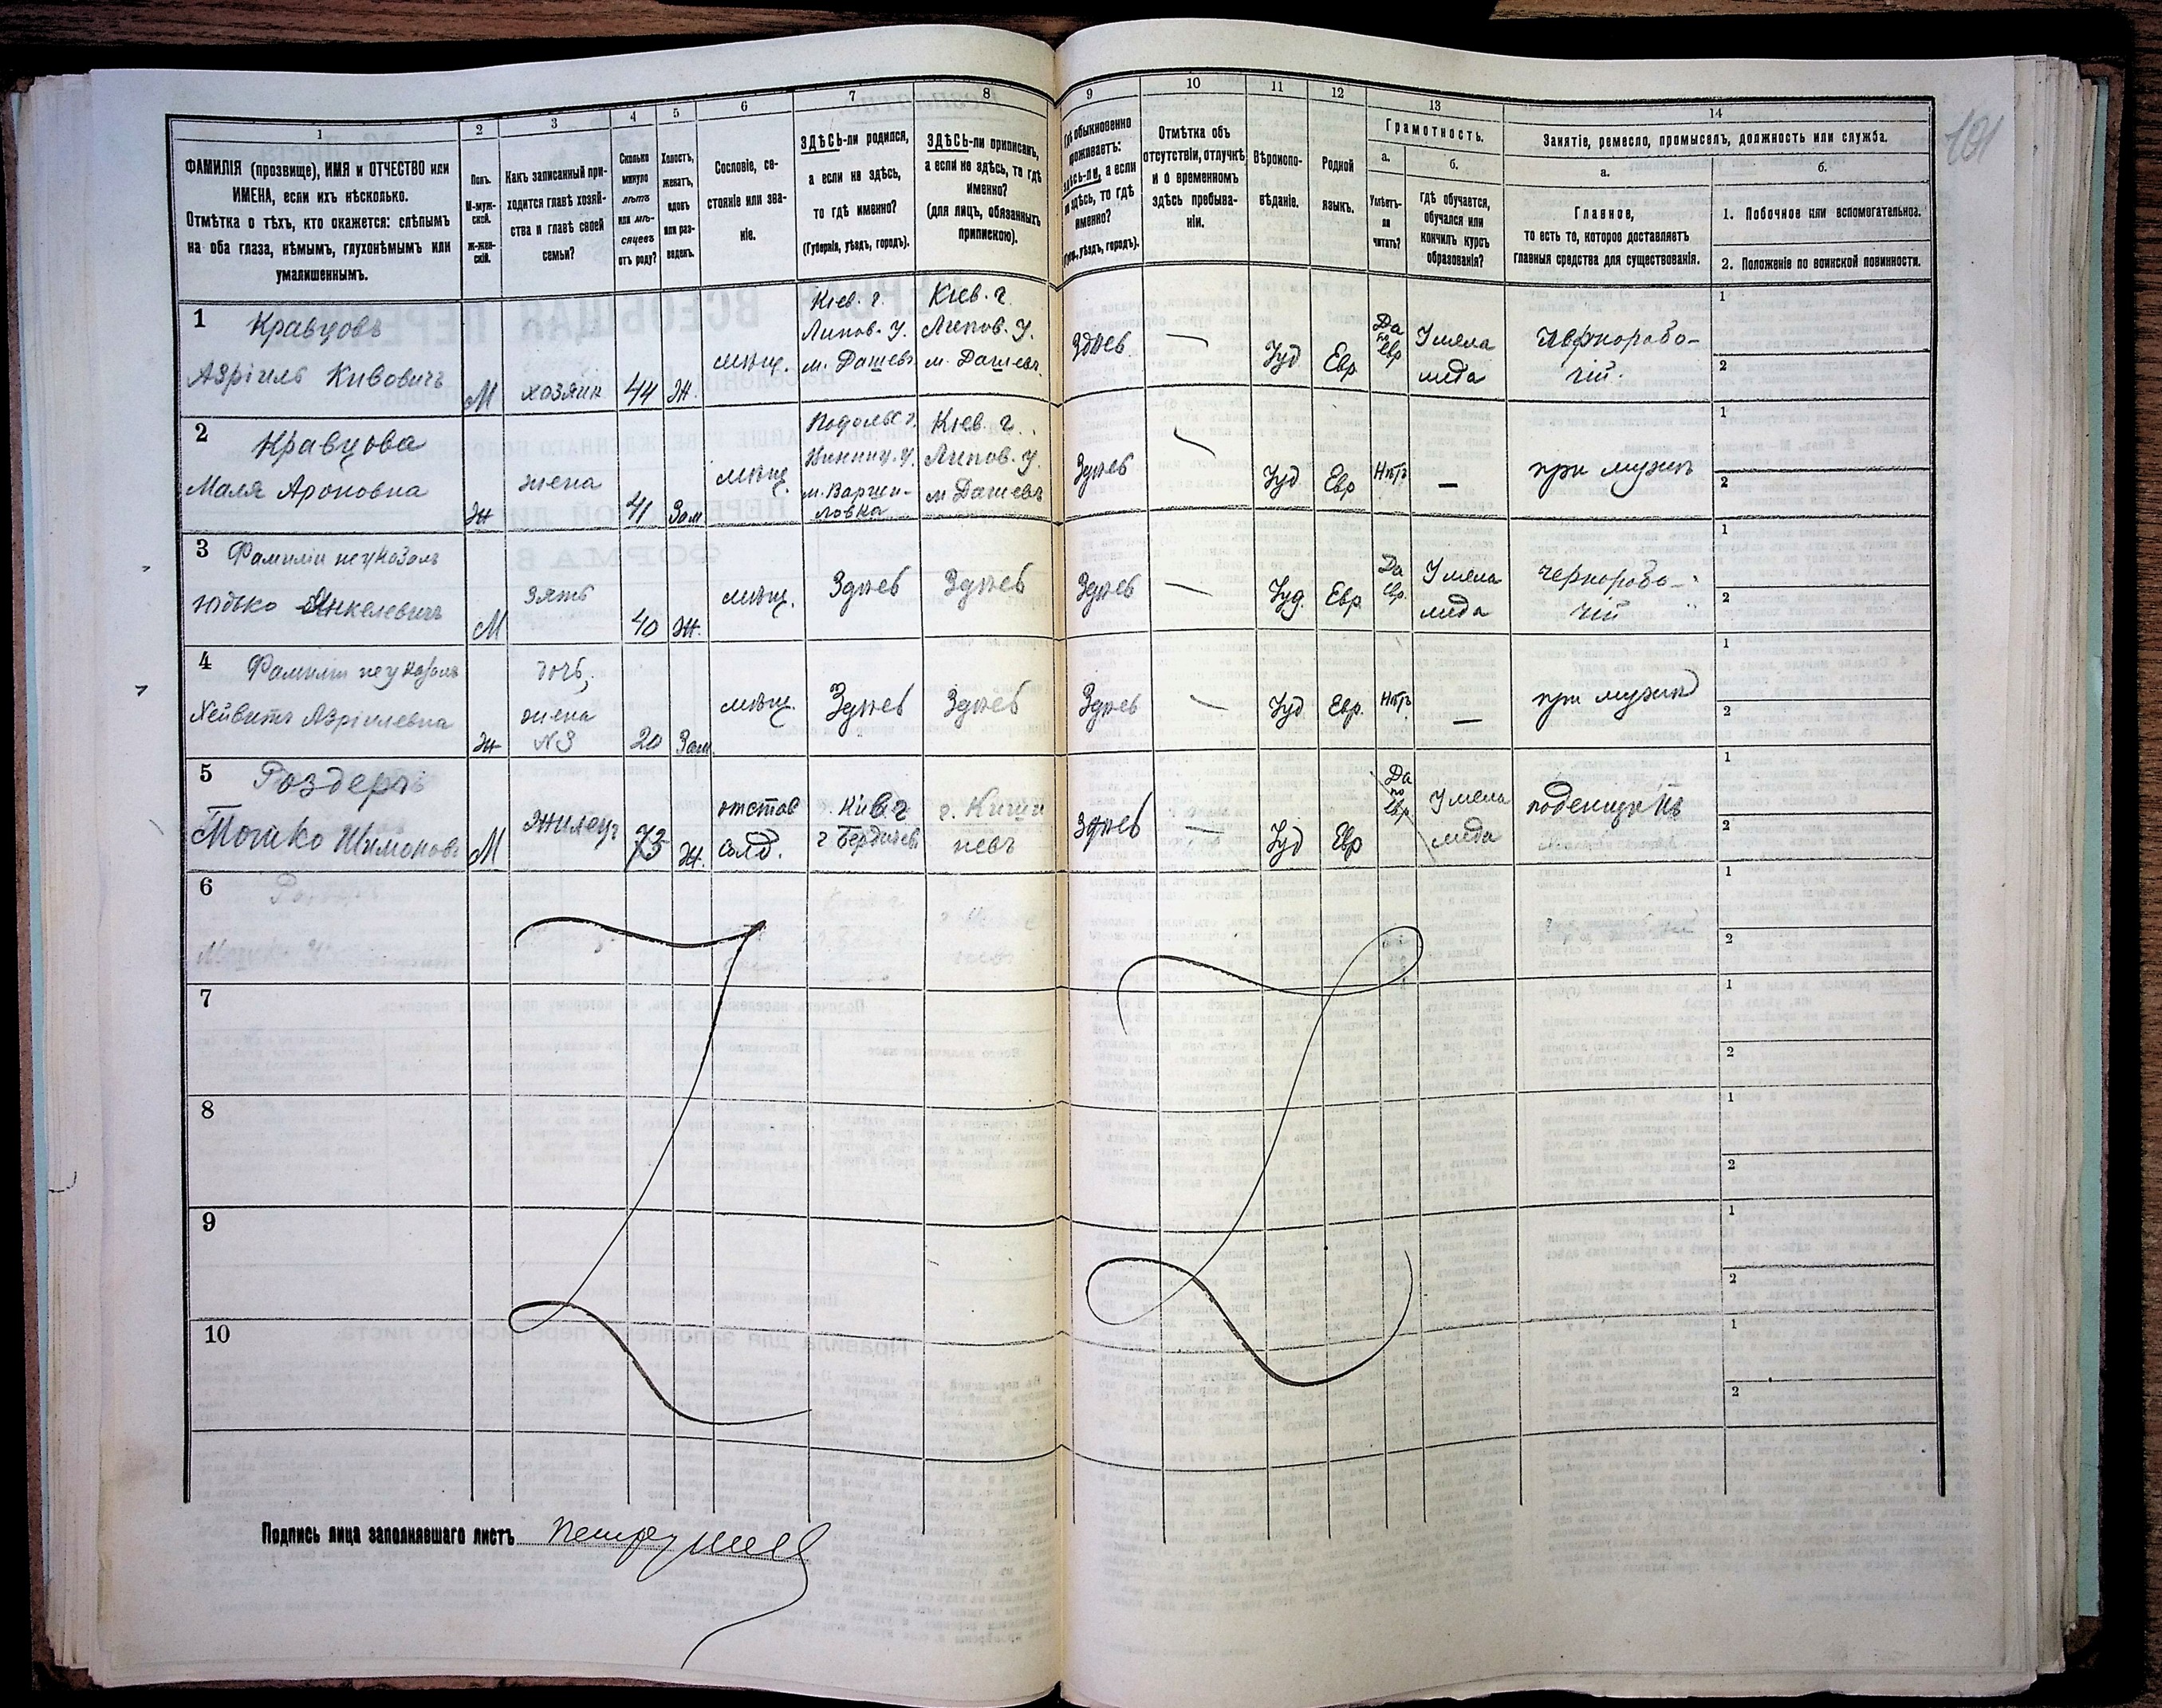 1
ФАМИЛІЯ (прозвище), ИМЯ и ОТЧЕСТВО или
ИМЕНА, если ихъ нѣсколько.
Отмѣтка о тѣхъ, кто окажется: слѣпымъ
на оба глаза, нѣмымъ, глухонѣмымъ или
умалишеннымъ.
2
Полъ.
М-муж-
ской.
Ж-жен-
скій.
3
Какъ записанный при-
ходится главѣ хозяй-
ства и главѣ своей
семьи?
4
Сколько
минуло
лѣтъ
или мѣ-
сяцевъ
отъ роду?
5
Холостъ,
женатъ,
вдовъ
или раз-
веденъ.
6
Сословіе, со-
стояніе или зва-
ніе.
7
ЗДѢСЬ-ли родился,
а если не здѣсь,
то гдѣ именно?
(Губернія, уѣздъ, городъ).
8
ЗДѢСЬ-ли приписанъ,
а если не здѣсь, то гдѣ
именно?
(для лицъ, обязанныхъ
припискою).
9
обыкновенно
проживаетъ:
здѣсь-ли, а если
не здѣсь, то гдѣ
именно?
уѣздъ, городъ).
10
Отмѣтка объ
отсутствіи, отлучкѣ
и о временномъ
здѣсь пребыва-
ніи.
11
Вѣроиспо-
вѣданіе.
12
Родной
языкъ.
13
Грамотность.
а.
Умѣетъ-
ли
читать?
б.
гдѣ обучается,
обучался или
кончилъ курсъ
образованія?
14
Занятіе, ремесло, промыселъ, должность или служба.
а.
Главное,
то есть то, которое доставляетъ
главныя средства для существованія.
б.
1. Побочное или вспомогательное.
2. Положеніе по воинской повинности.
101
1
Кравцовъ
Азріиль Кивовичъ
М
хозяин
44
Ж.
мѣщ.
Кіев. г.
Липов. у.
м. Дашевъ
Кіев. г.
Липов. у.
м. Дашевъ.
Здѣсь
—
Іуд
Евр
Да
по
Евр
У мела
меда
чернорабо-
чій.
1
2
2
Кравцова
Маля Ароновна
Ж
жена
41
Зам
мѣщ.
Подольс г.
Винниц. у.
Кіев. г.
Липов. у.
м Дашевъ
Здѣсь
—
Іуд
Евр
Нѣтъ
—
при мужѣ
1
2
3
Фамиліи не указалъ
Юдько Янкелевичъ
М
зять
40
Ж.
мѣщ.
Здѣсь
Здѣсь
Здѣсь
—
Іуд.
Евр.
Да
Евр.
У мела
меда
чернорабо-
чій
1
2
4
Фамиліи не указалъ
Азріилевна
Ж
дочь,
жена
N3
20
Зам.
мѣщ.
Здѣсь
Здѣсь
Здѣсь
—
Іуд
Евр.
Нѣтъ
—
при мужѣ
1
2
5
Мошко Шимоновъ
М
Жилецъ
73
Ж.
отстав
солд.
г. Бердичевъ
г. Киши
невъ
Здѣсь
—
Іуд
Евр
Да
по
Евр.
У мела
меда
поденщикъ
1
2
6
1
2
7
1
2
8
1
2
9
1
2
10
1
2
Подпись лица заполнявшаго листъ